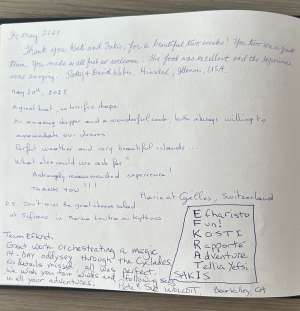 19 May 2023
Thank you both and Zakis, for a beautiful two weeks! You two are a great
team. You made us all feel so welcome. The food was excellent and the experience
was amazing. & David Hinsdale, Illinois, USA.
May 20th, 2023
A great boat, in terrific shape...
An amazing skipper and a wonderful cook, both always willing to
accommodate our dreams
Perfect weather and very beautiful islands...
What else could we ask for?
A strongly recommended experience!
THANK YOU!!!
Maria et Gilles, Switzerland
P.S. Don't miss the great cheese salad
at in Kythnos
Team Efkrat.
Great work orchestrating a magic,
14-DAY odyssey through the Cyclades.
No details missed, all was perfect.
We wish you fair winds and following seas
in all your adventures.
& Sue WOLCOTT. Berkeley, CA
Efharisto
Fun!
KOSTI
Rapporté
Adventure
Tellia Yefsi
SAKIS